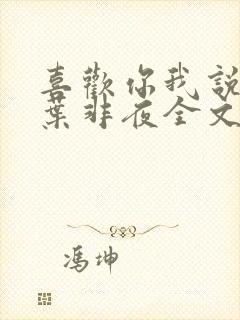 喜歡你我說
葉非夜全文
馮坤